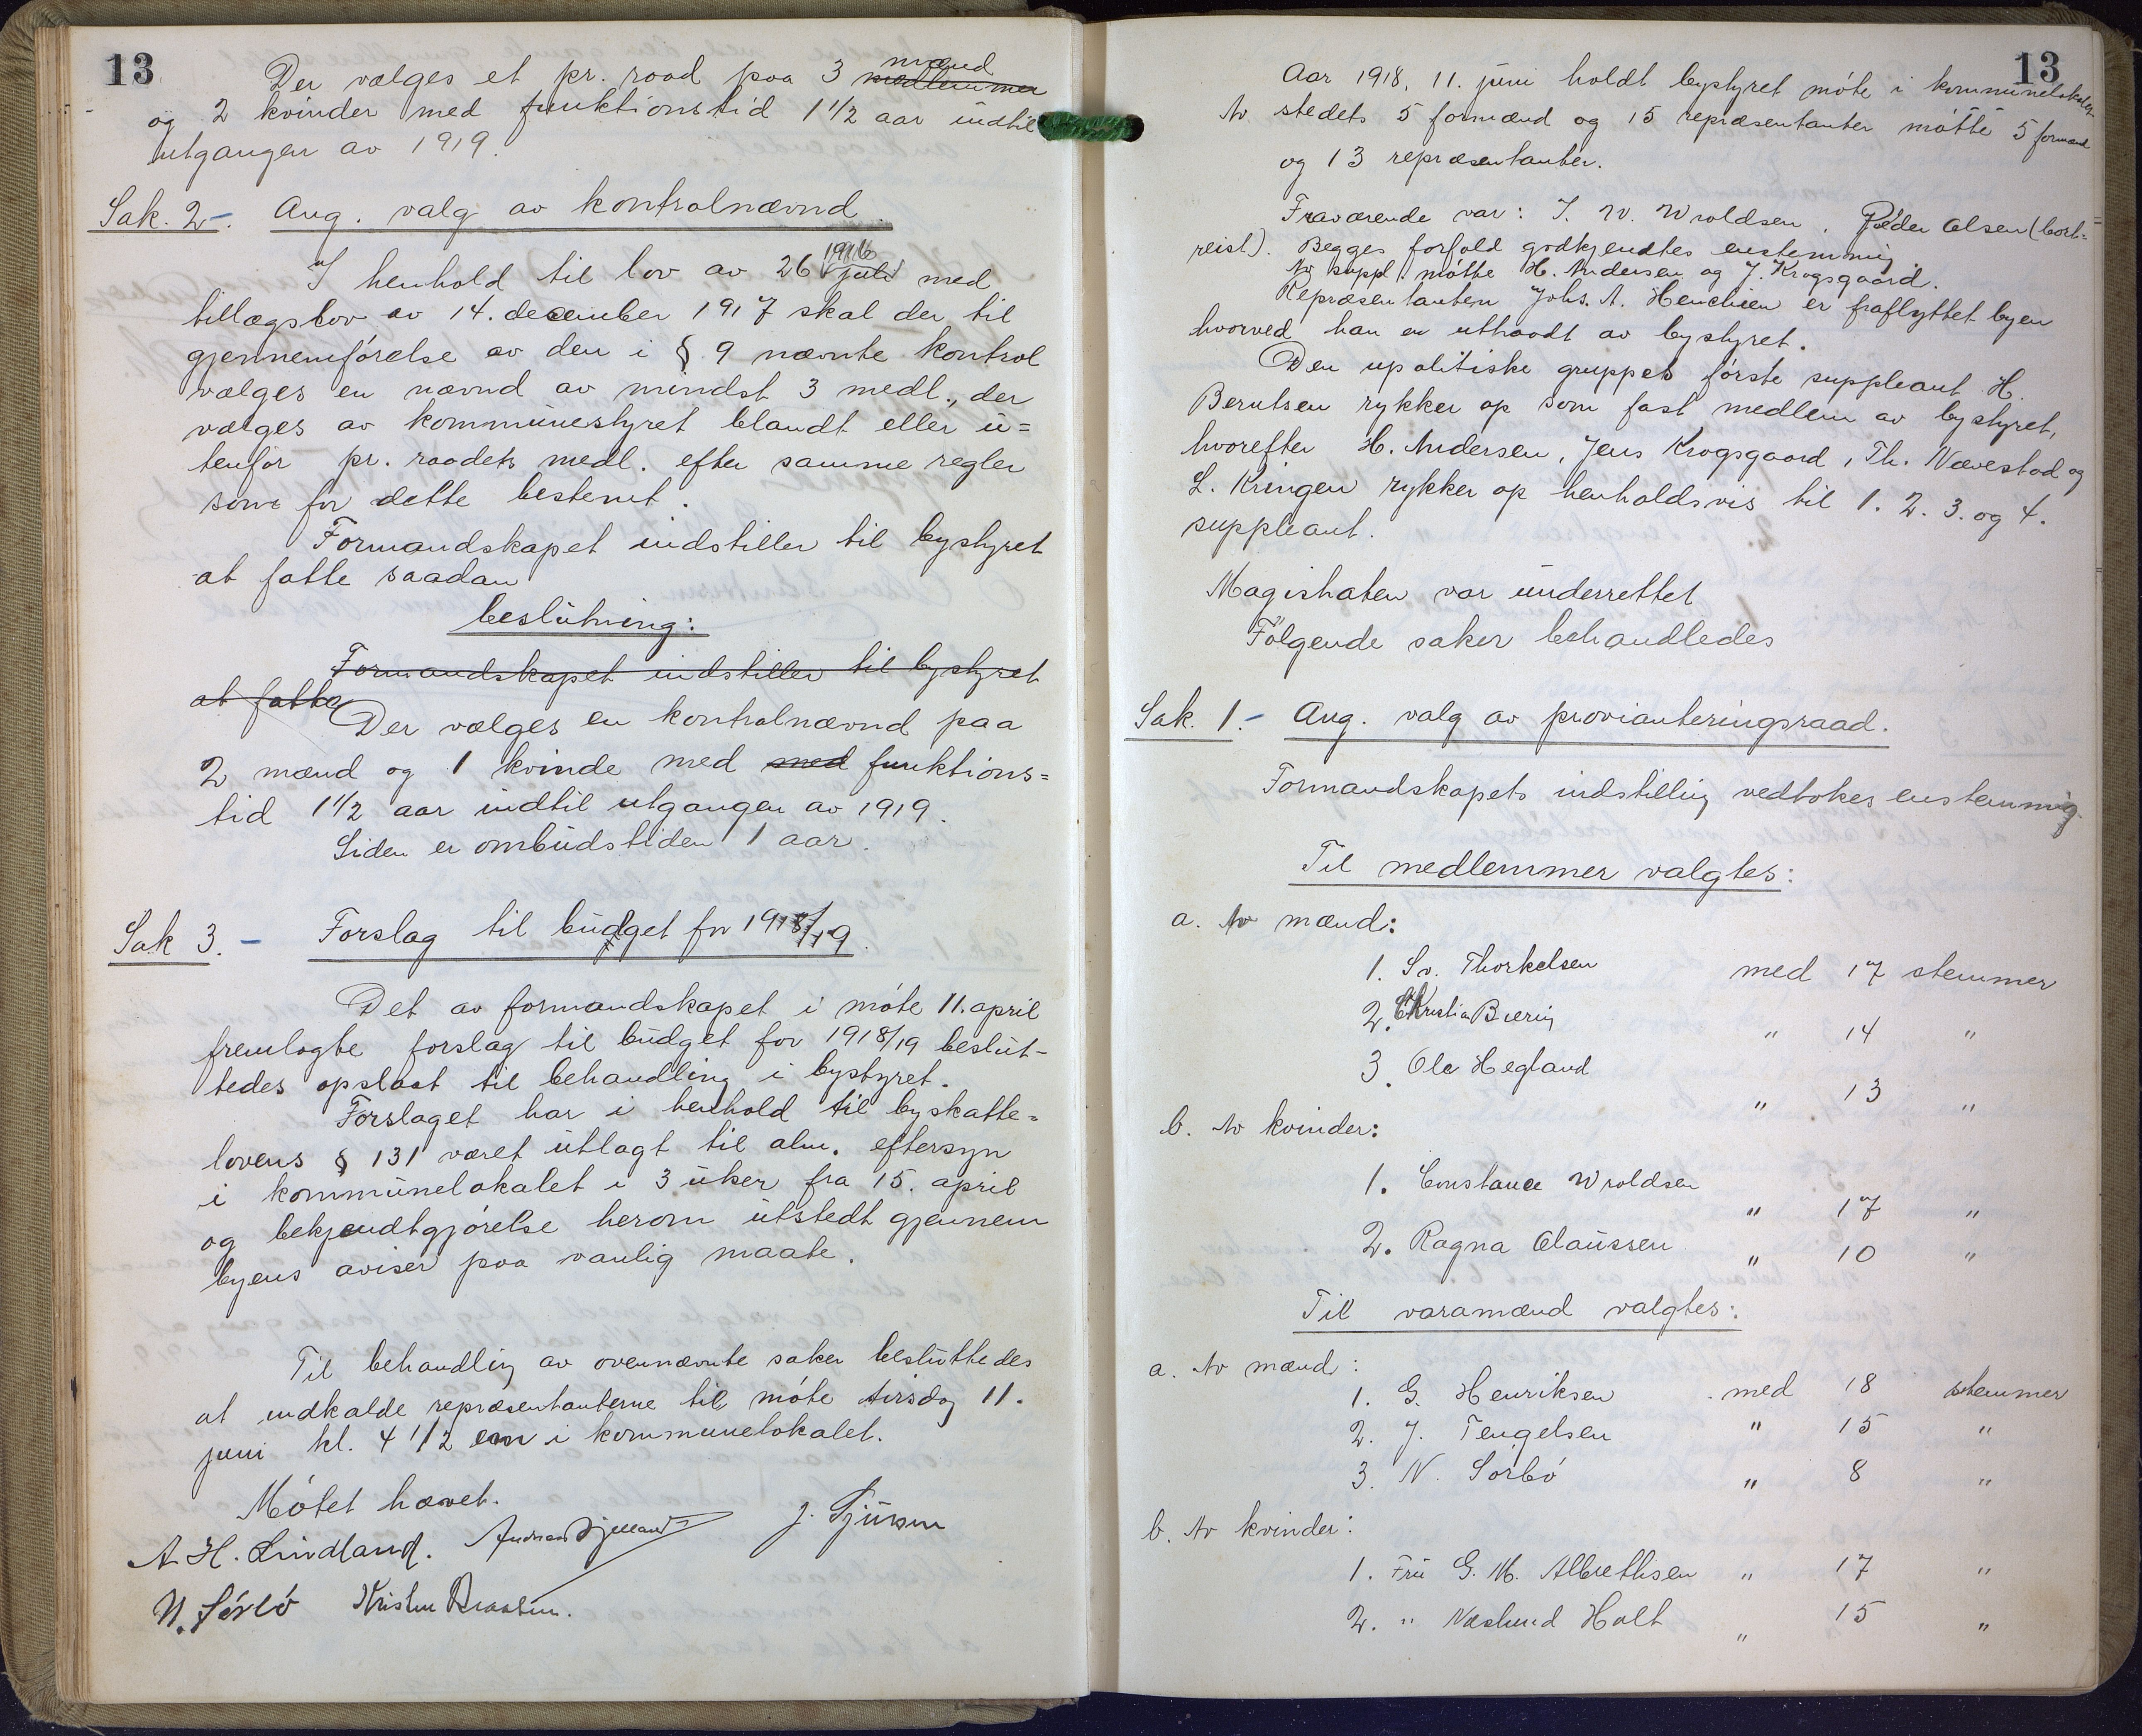 13
Der vælges et pr. raad paa 3 mænd medlemmer
og 2 kvinder med funktionstid 1 1/2 aar indtil
utgangen av 1919.
Sak. 2 -. Ang. valg av kontrolnævnd.
I henhold til lov av 26 juli 1916 med
tillægslov av 14. december 1917 skal der til
gjennemførelse av den i § 9 nævnte kontrol
vælges en nævnd av mindst 3 medl., der
vælges av kommunestyret blandt eller u=
tenfor pr. raadets medl. efter samme regler
som for dette bestemt.
Formandskapet indstiller til bystyret
at fatte saadan
beslutning:
Formandskapet indstiller til bystyret
at fatte
Der vælges en kontrolnævnd paa
2 mænd og 1 kvinde med med funktions=
tid 1 1/2 aar indtil utgangen av 1919.
Siden er ombudstiden 1 aar.
Sak 3. - Forslag til budget for 1918/19.
Det av formandskapet i møte 11. april
fremlagte forslag til budget for 1918/19 beslut-
tedes opslaat til behandling i bystyret.
Forslaget har i henhold til byskatte=
lovens § 131 været utlagt til alm. eftersyn
i kommunelokalet i 3 uker fra 15. april
og bekjendtgjørelse herom utstedt gjennem
byens aviser paa vanlig maate.
Til behandling av ovennævnte saker besluttedes
at indkalde repræsentanterne til møte tirsdag 11.
juni kl. 4 1/2 em i kommunelokalet.
Møtet hævet.
A. H. Lindland. J.
N. Sørbø
13
Aar 1918, 11. juni holdt bystyret møte i kommunelokalet
Av stedets 5 formænd og 15 repræsentanter møtte 5 formænd
og 13 repræsentanter.
Fraværende var: J. W. Wroldsen, Peder Olsen (bort=
reist). Begges forfald godkjendtes enstemmig
Av suppl. møtte H. Andersen og J. Krogsgaard.
Repræsentanten Johs. A. Henchien er fraflyttet byen
hvorved han er uttraadt av bystyret.
Den upolitiske gruppes første suppleant H.
Berntsen rykker op som fast medlem av bystyret,
hvorefter H. Andersen, Jens Krogsgaard, Th. Nævestad og
L. Kringen rykker op henholdsvis til 1. 2. 3. og 4.
suppleant.
Magistraten var underrettet
Følgende saker behandledes
Sak. 1. - Ang. valg av provianteringsraad.
Formandskapets indstilling vedtokes enstemmig.
Til medlemmer valgtes:
a. Av mænd:
1. Sv. Thorkelsen med 17 stemmer
2. Kristian Biering " 14 "
3. Ole Hegland " 13 "
b. Av kvinder:
1. Constance Wroldsen " 17 "
2. Ragna Claussen " 10 "
Til varamænd valgtes:
a. Av mænd:
1. G. Henriksen med 18 stemmer
2. J. Tengelsen " 15 "
3. N. Sørbø " 8 "
b. Av kvinder:
1. Fru G. M. Albrethsen " 17 "
2. " Næslund Holt " 15 "